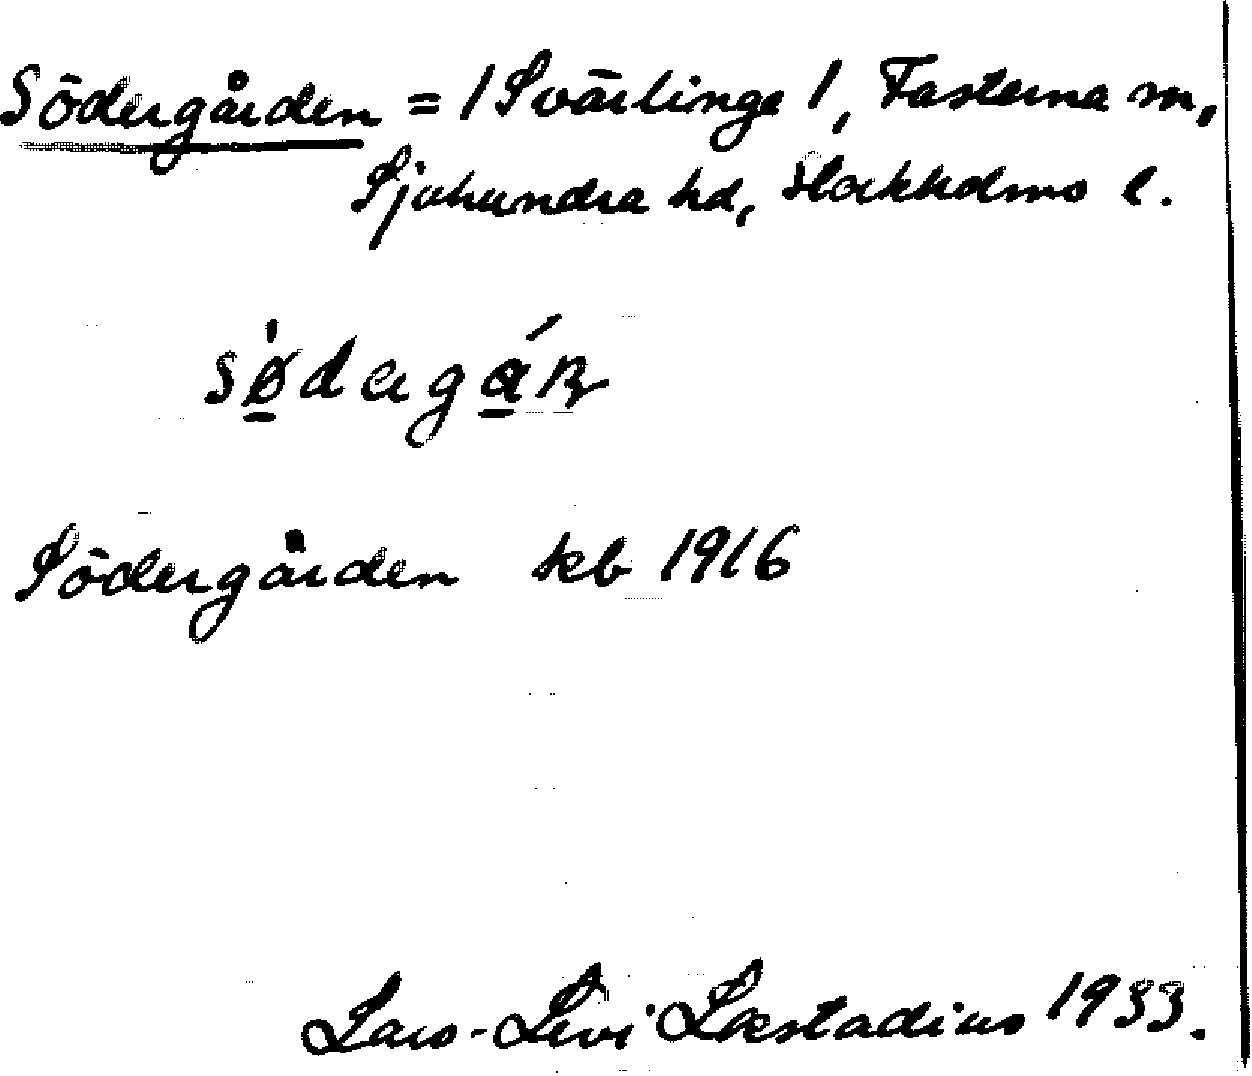 Södergården = / Svärlinge /, Fasterna sn,
Sjuhundra hd, Stockholms l.
Södergården kb 1916
Lars-Levi Læstadius 1933.